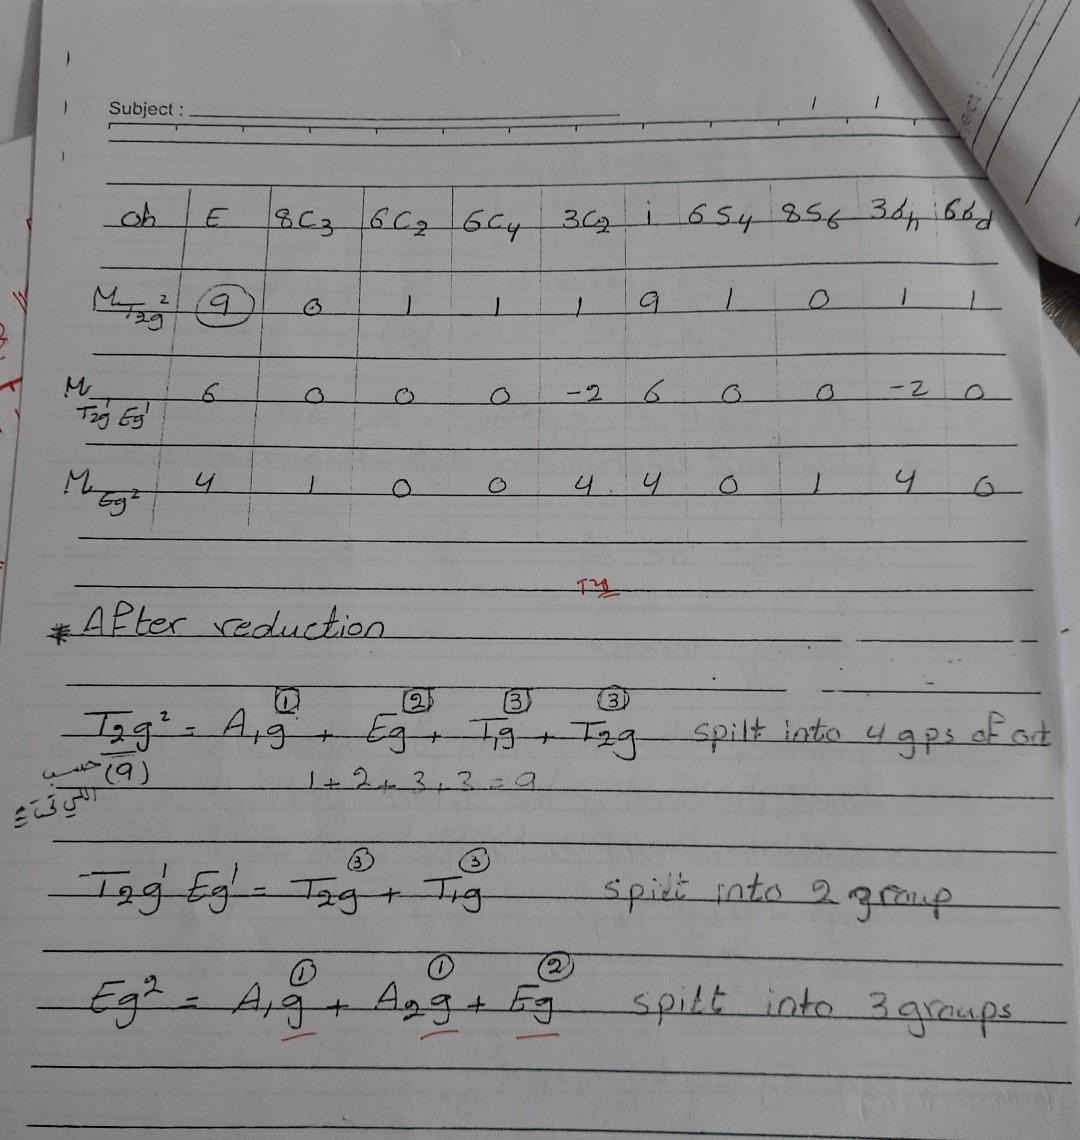 Subject :
oh E 8C3 6C2 6C4 3C2 i 6S4 8S6 3δh 6δd
M T2g² 9 0 1 1 1 9 1 0 1 1
M T2g¹ Eg¹ 6 0 0 0 -2 6 0 0 -2 0
M Eg² 4 1 0 0 4 4 0 1 4 0
T2g
* After reduction
① ② ③ ③
T2g² = A1g + Eg + T1g + T2g spilt into 4 gps of orb
(9) حسب 1 + 2 + 3 + 3 = 9
اللي
③ ③
T2g¹ Eg¹ = T2g + T1g spilt into 2 group
① ① ②
Eg² = A1g + A2g + Eg spilt into 3 groups